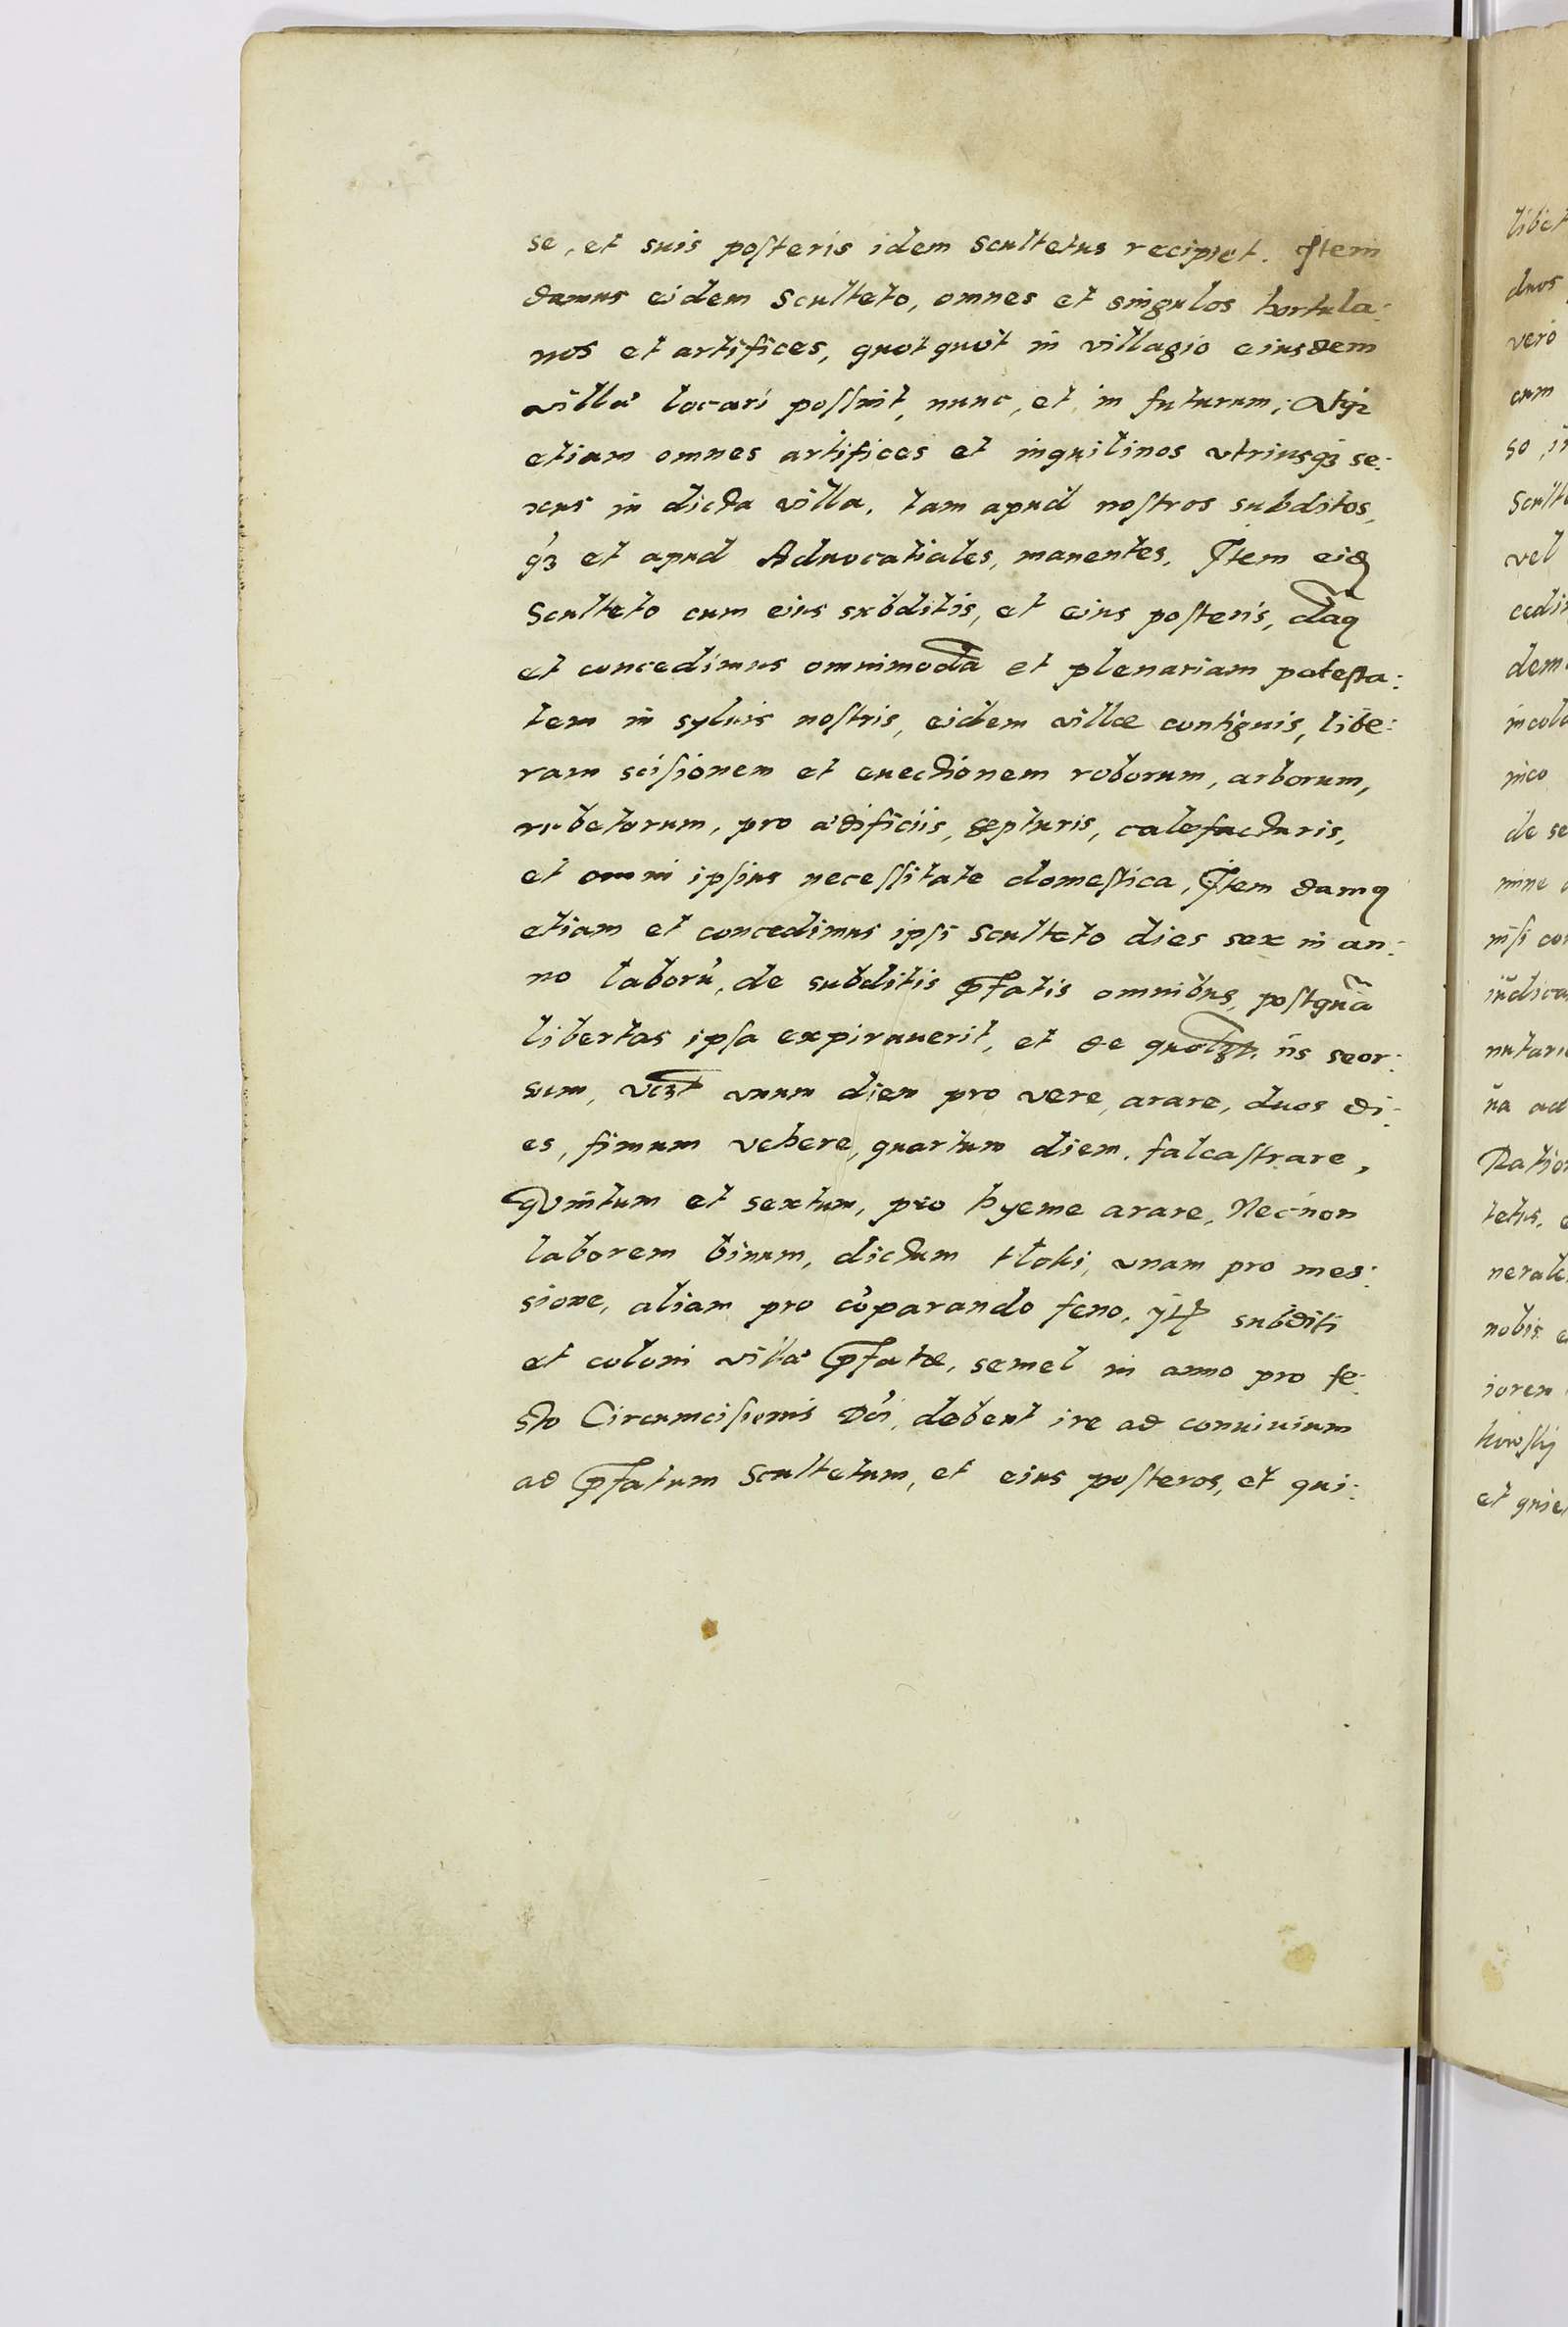 se, et suis posteris idem Scultetus recipiet. Item
damus eidem Sculteto, omnes et singulos hortula:
nos et artifices, quot quot in villagio eiusdem
villæ locari possint, nunc, et in futurum, Atqȝ
etiam omnes artifices et inquilinos vtriusqȝ se:
xus in dicta villa, tam apud nostros subditos,
qȝ et apud Aduocatiales, manentes. Item eid
Sculteto cum eius subditis, et eius posteris, damꝯ
et concedimus omnimodā et plenariam potesta:
tem in syluis nostris, eidem villæ contiguis, libe:
ram scisionem et euectionem roborum, arborum,
rubetorum, pro ædificiis, septuris, calefacturis,
et omni ipsius necessitate domestica, Item damꝯ
etiam et concedimus ipsi Sculteto dies sex in an:
no laborū, de subditis p̄fatis omnibus, postquā
libertas ipsa expirauerit, et de quolibȝ iis seor:
sum, vcȝt vnum diem pro vere, arare, duos di:
es, fimum vehere, quartum diem, falcastrare,
Quintum et sextum, pro hyeme arare, Necnon
laborem binum, dictum tloki, vnam pro mes:
sione, aliam pro cōparando feno. Itē subditi
et coloni villæ p̄fatæ, semel in anno pro fe:
sto Circumcisionis Dn̄i, debent ire ad conuiuium
ad p̄fatum Scultetum, et eius posteros, et qui:
libet
duos
vero
cum
so, in
vel
dem
nico
de se
nisi con
na ad
nobis
et quie